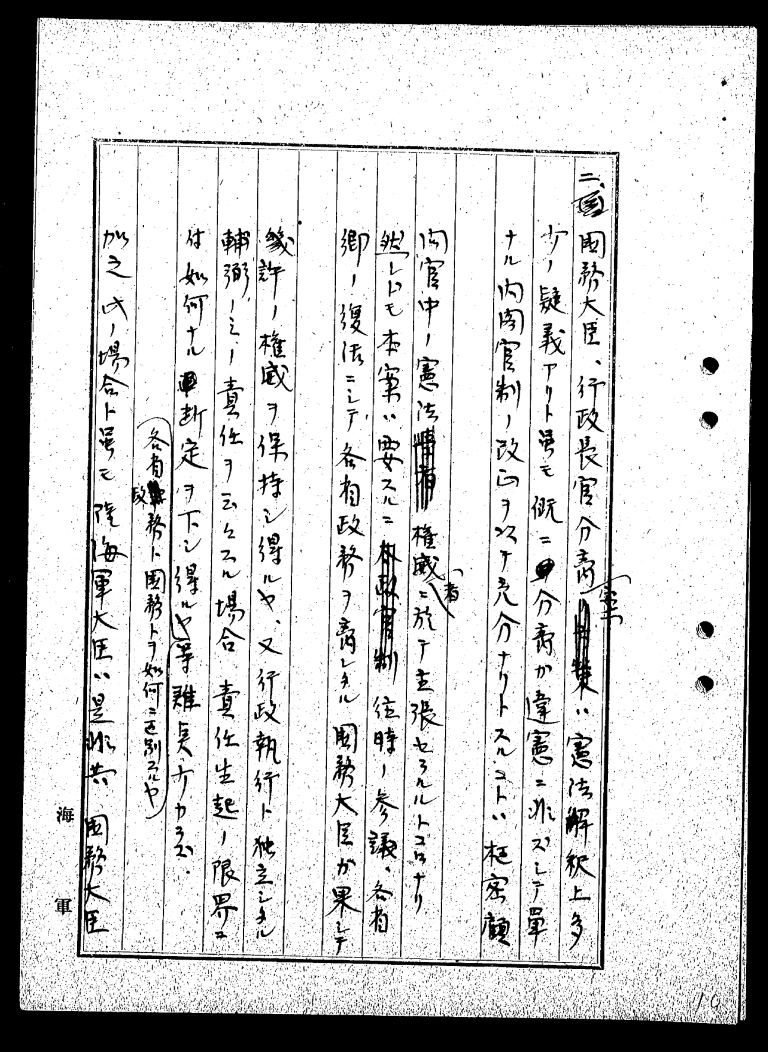 二、国務大臣、行政長官分離案ハ憲法解釈上多
少ノ疑義アリト雖モ概ニ分離ガ違憲ニ非ズシテ単
ナル内閣官制ノ改正ヲ以テ充分ナリトスルコトハ枢密顧
問官中ノ憲法権威者ニ於テ主張セラルルトコロナリ
然レドモ本案ハ要スルニ往時ノ参議、各省
卿ノ復活ニシテ各省政務ヲ離レタル国務大臣ガ果シテ
幾許ノ権威ヲ保持シ得ルヤ、又行政執行ト独立シタル
輔弼ノミノ責任ヲ云々スル場合責任生起ノ限界ニ
付如何ナル断定ヲ下シ得ルヤ
(各省政務ト国務トヲ如何ニ区別スルヤ)
等難点ナカラズ、
加之此ノ場合ト雖モ陸海軍大臣ハ是非共国務大臣
海軍
16